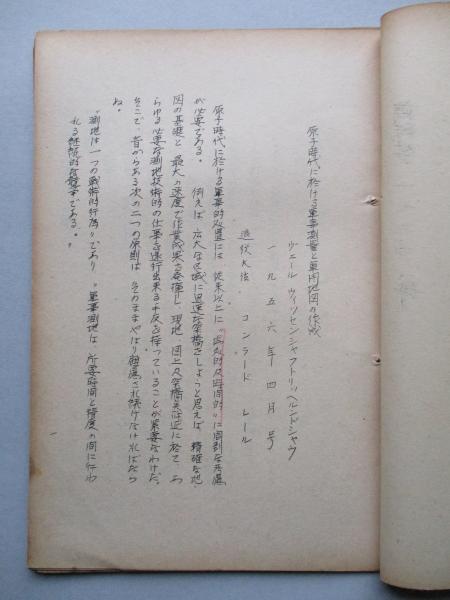 原子時代に於ける軍事測量と軍用地図の作成
ヴェールウィッセンシャフトリッヘルンドシャウ
一九五六年四月号
退役大佐 コンラード レール
原子時代に於ける軍事的処置には 従来以上に"場処的及時間的"に周到な考慮
が必要である。 例えば 広大な区域に迅速な架橋をしようと思えば 精確な地
図の基礎と 最大の速度で作業成果を発揮し 現地、図上及架橋点附近に於て あ
らゆる必要な測地技術的の仕事を遂行出来る手段を持っていることが緊要なわけだ。
そこで、昔からある次の二つの原則は そのままやはり顧慮され続けなければなら
ぬ。
"測地は一つの戦術的行為"であり "軍事測地は、所要時間と精度の間に行わ
れる継続的な競争である。"